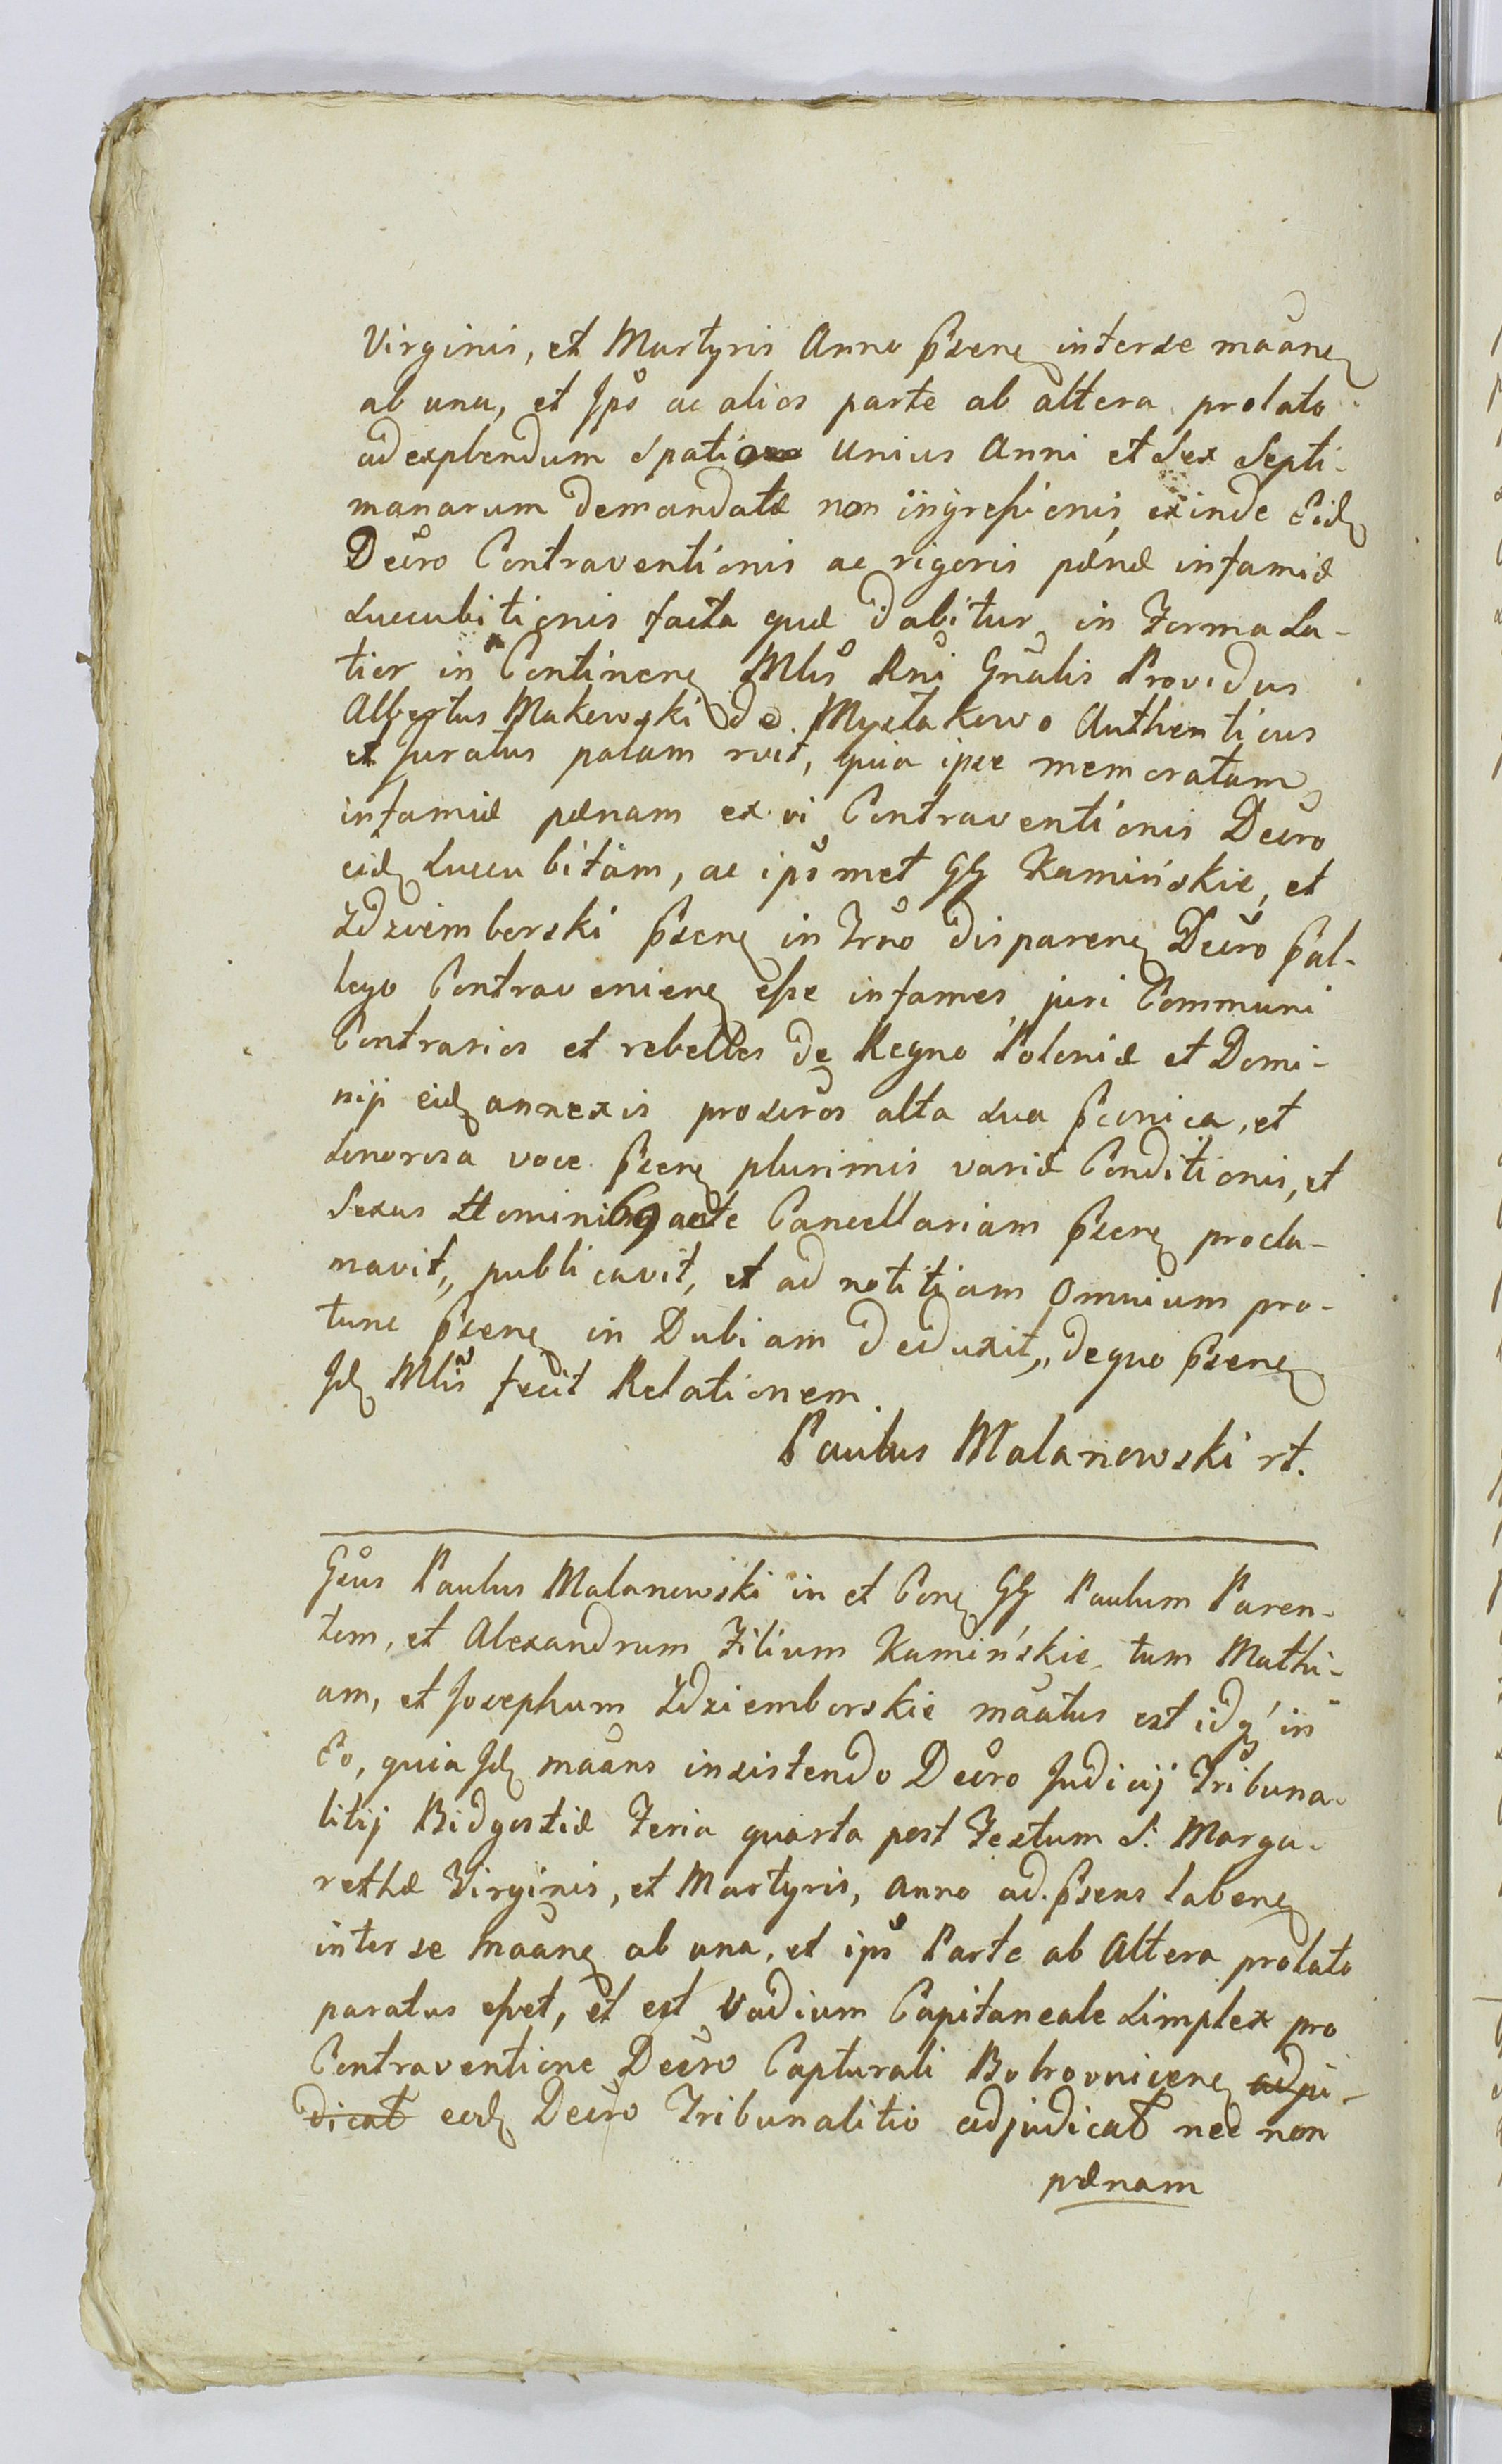 Virginis, et Martyris Anno p̃sene interse maane
ab una, et Ipõ ac alios parte ab altera prolato
ad explendum spatio unius Anni et Sex Septi-
manarum demandatæ non ingreſsionis, exinde Eid
Decro Contraventionis ac rigoris pænæ infamiæ
succubitionis facta quæ dabitur in Forma La-
tior in Continene Mlis Rni Gnalis Providus
Albertus Makowski de Mystakowo Authenticus
et Juratus palam rvit, quia ipse memoratam
infamiæ pænam ex vi Contraventionis Decro
eid succubitam, ac ipõmet GG Kamińskie, et
Zdziemborski p̃sene in Trño disparene Decro p̃al-
lego Contraveniene eſse infames juri Communi
Contrarios et rebelles de Regno Poloniæ et Domi-
nijs eid annexis proscros alta sua p̃conica, et
sonorosa voce p̃sene plurimis variæ Conditionis, et
Sexus Hominibq acte Cancellariam p̃sene procla-
mavit,, publicavit, et ad notitiam Omnium pro-
tunc p̃sene in Dubiam deduxit,, de quo p̃sene
Id Mlis fecit Relationem.
Paulus Malanowski rt.
Gsus Paulus Malanowski in et Cone GG Paulum Paren-
tem, et Alexandrum Filium Kamińskie, tum Mathi-
am, et Josephum Zdziemborskie maatus est idq́ in
Eo, quia Id maans insistendo Decro Judicij Tribuna-
litij Bidgostiæ Feria quarta post Festum S. Marga-
rethæ Virginis, et Martyris, anno ad p̃sens labene
inter se maane ab una, et ipõ Parte ab Altera prolato
paratus eſset, et est Vadium Capitaneale simplex pro
Contraventione Decro Capturali Bobrovnicene adju-
dicat eod Decro Tribunalitio adjudicat nec non
pænam